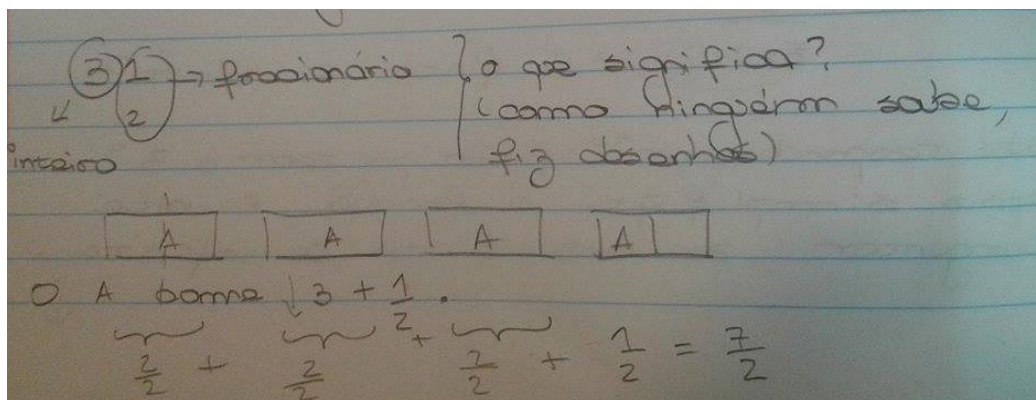 3 1/2 → fracionário { o que significa?
(como ninguém sabe,
inteiro
fiz desenhos)
A A A A
O A come 3 + 1/2.
2/2 + 2/2 + 2/2 + 1/2 = 7/2